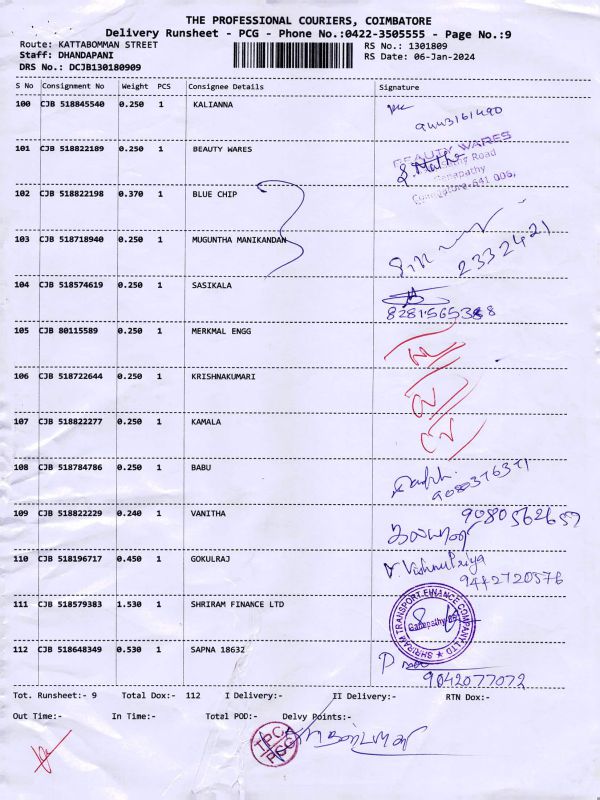 THE PROFESSIONAL COURIERS, COIMBATORE
Delivery Runsheet - PCG - Phone No.:0422-3505555 - Page No.:9
Route: KATTABOMMAN STREET
RS No.: 1301809
Staff: DHANDAPANI
RS Date: 06-Jan-2024
DRS No.: DCJB130180909
S No Consignment No Weight PCS Consignee Details Signature
100 CJB 518845540 0.250 1 KALIANNA
9443161490
101 CJB 518822189 0.250 1 BEAUTY WARES
BEAUTY WARES
Road
Ganapathy
Coimbatore-641 006.
102 CJB 518822198 0.370 1 BLUE CHIP
103 CJB 518718940 0.250 1 MUGUNTHA MANIKANDAN
2332421
104 CJB 518574619 0.250 1 SASIKALA
105 CJB 80115589 0.250 1 MERKMAL ENGG
106 CJB 518722644 0.250 1 KRISHNAKUMARI
107 CJB 518822277 0.250 1 KAMALA
108 CJB 518784786 0.250 1 BABU
9080376371
109 CJB 518822229 0.240 1 VANITHA
9080562657
110 CJB 518196717 0.450 1 GOKULRAJ
V. VishnuPriya
9442720576
111 CJB 518579383 1.530 1 SHRIRAM FINANCE LTD
SHRIRAM TRANSPORT FINANCE COMPANY LTD
Ganapathy
112 CJB 518648349 0.530 1 SAPNA 18632
9042077072
Tot. Runsheet:- 9 Total Dox:- 112 I Delivery:- II Delivery:- RTN Dox:-
Out Time:- In Time:- Total POD:- Delvy Points:-
TPC
PCG